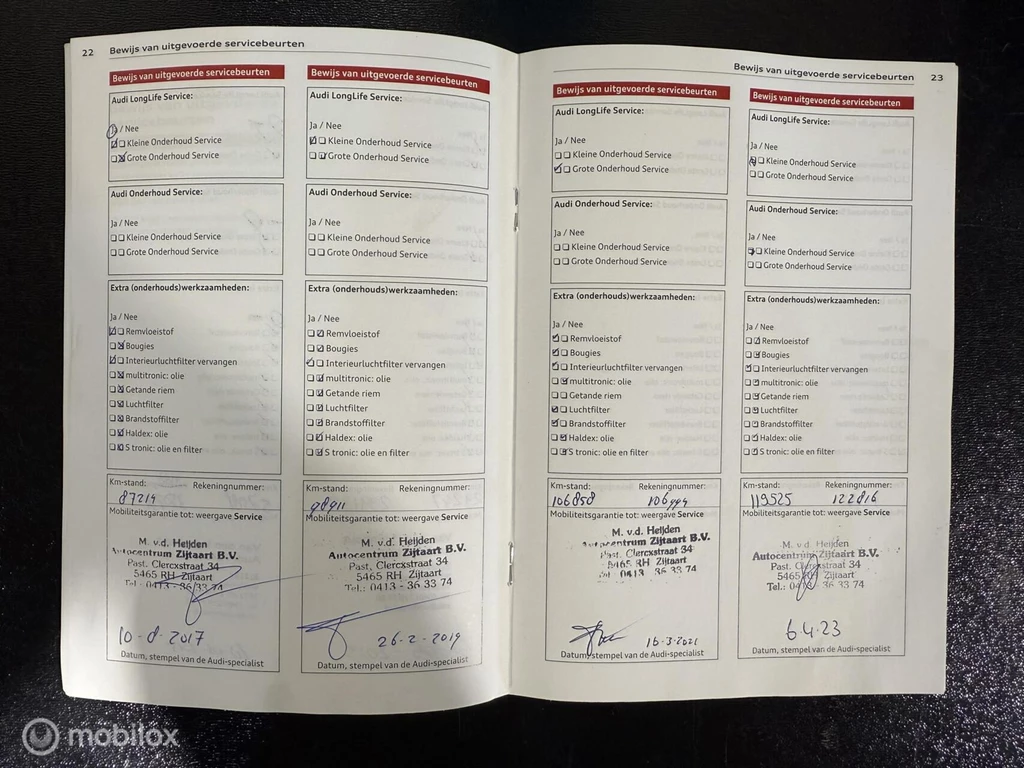 22 Bewijs van uitgevoerde servicebeurten
Bewijs van uitgevoerde servicebeurten
Audi LongLife Service:
Ja / Nee
Kleine Onderhoud Service
Grote Onderhoud Service
Audi Onderhoud Service:
Ja / Nee
Kleine Onderhoud Service
Grote Onderhoud Service
Extra (onderhouds)werkzaamheden:
Ja / Nee
Remvloeistof
Bougies
Interieurluchtfilter vervangen
multitronic: olie
Getande riem
Luchtfilter
Brandstoffilter
Haldex: olie
S tronic: olie en filter
Km-stand: Rekeningnummer:
87214
Mobiliteitsgarantie tot: weergave Service
M. v.d. Heijden
Autocentrum Zijtaart B.V.
Past. Clercxstraat 34
5465 RH Zijtaart
Tel.: 0413 - 36 33 74
10-8-2017
Datum, stempel van de Audi-specialist
Bewijs van uitgevoerde servicebeurten
Audi LongLife Service:
Ja / Nee
Kleine Onderhoud Service
Grote Onderhoud Service
Audi Onderhoud Service:
Ja / Nee
Kleine Onderhoud Service
Grote Onderhoud Service
Extra (onderhouds)werkzaamheden:
Ja / Nee
Remvloeistof
Bougies
Interieurluchtfilter vervangen
multitronic: olie
Getande riem
Luchtfilter
Brandstoffilter
Haldex: olie
S tronic: olie en filter
Km-stand: Rekeningnummer:
98911
Mobiliteitsgarantie tot: weergave Service
M. v.d. Heijden
Autocentrum Zijtaart B.V.
Past. Clercxstraat 34
5465 RH Zijtaart
Tel.: 0413 - 36 33 74
26-2-2019
Datum, stempel van de Audi-specialist
Bewijs van uitgevoerde servicebeurten 23
Bewijs van uitgevoerde servicebeurten
Audi LongLife Service:
Ja / Nee
Kleine Onderhoud Service
Grote Onderhoud Service
Audi Onderhoud Service:
Ja / Nee
Kleine Onderhoud Service
Grote Onderhoud Service
Extra (onderhouds)werkzaamheden:
Ja / Nee
Remvloeistof
Bougies
Interieurluchtfilter vervangen
multitronic: olie
Getande riem
Luchtfilter
Brandstoffilter
Haldex: olie
S tronic: olie en filter
Km-stand: Rekeningnummer:
106858
Mobiliteitsgarantie tot: weergave Service
M. v.d. Heijden
Autocentrum Zijtaart B.V.
Past. Clercxstraat 34
5465 RH Zijtaart
Tel.: 0413 - 36 33 74
16-3-2021
Datum, stempel van de Audi-specialist
Bewijs van uitgevoerde servicebeurten
Audi LongLife Service:
Ja / Nee
Kleine Onderhoud Service
Grote Onderhoud Service
Audi Onderhoud Service:
Ja / Nee
Kleine Onderhoud Service
Grote Onderhoud Service
Extra (onderhouds)werkzaamheden:
Ja / Nee
Remvloeistof
Bougies
Interieurluchtfilter vervangen
multitronic: olie
Getande riem
Luchtfilter
Brandstoffilter
Haldex: olie
S tronic: olie en filter
Km-stand: Rekeningnummer:
119525 122816
Mobiliteitsgarantie tot: weergave Service
M. v.d. Heijden
Autocentrum Zijtaart B.V.
Past. Clercxstraat 34
5465 RH Zijtaart
Tel.: 0413 - 36 33 74
6.4.23
Datum, stempel van de Audi-specialist
mobilox